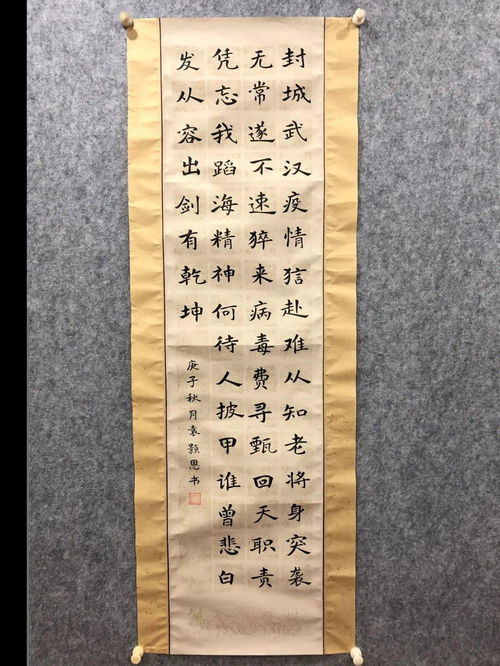 封城武汉疫情狺赴难从知老将身突袭
无常遂不速猝来病毒费寻甄回天职责
凭忘我蹈海精神何待人披甲谁曾悲白
发从容出剑有乾坤
庚子秋月袁颢恩书